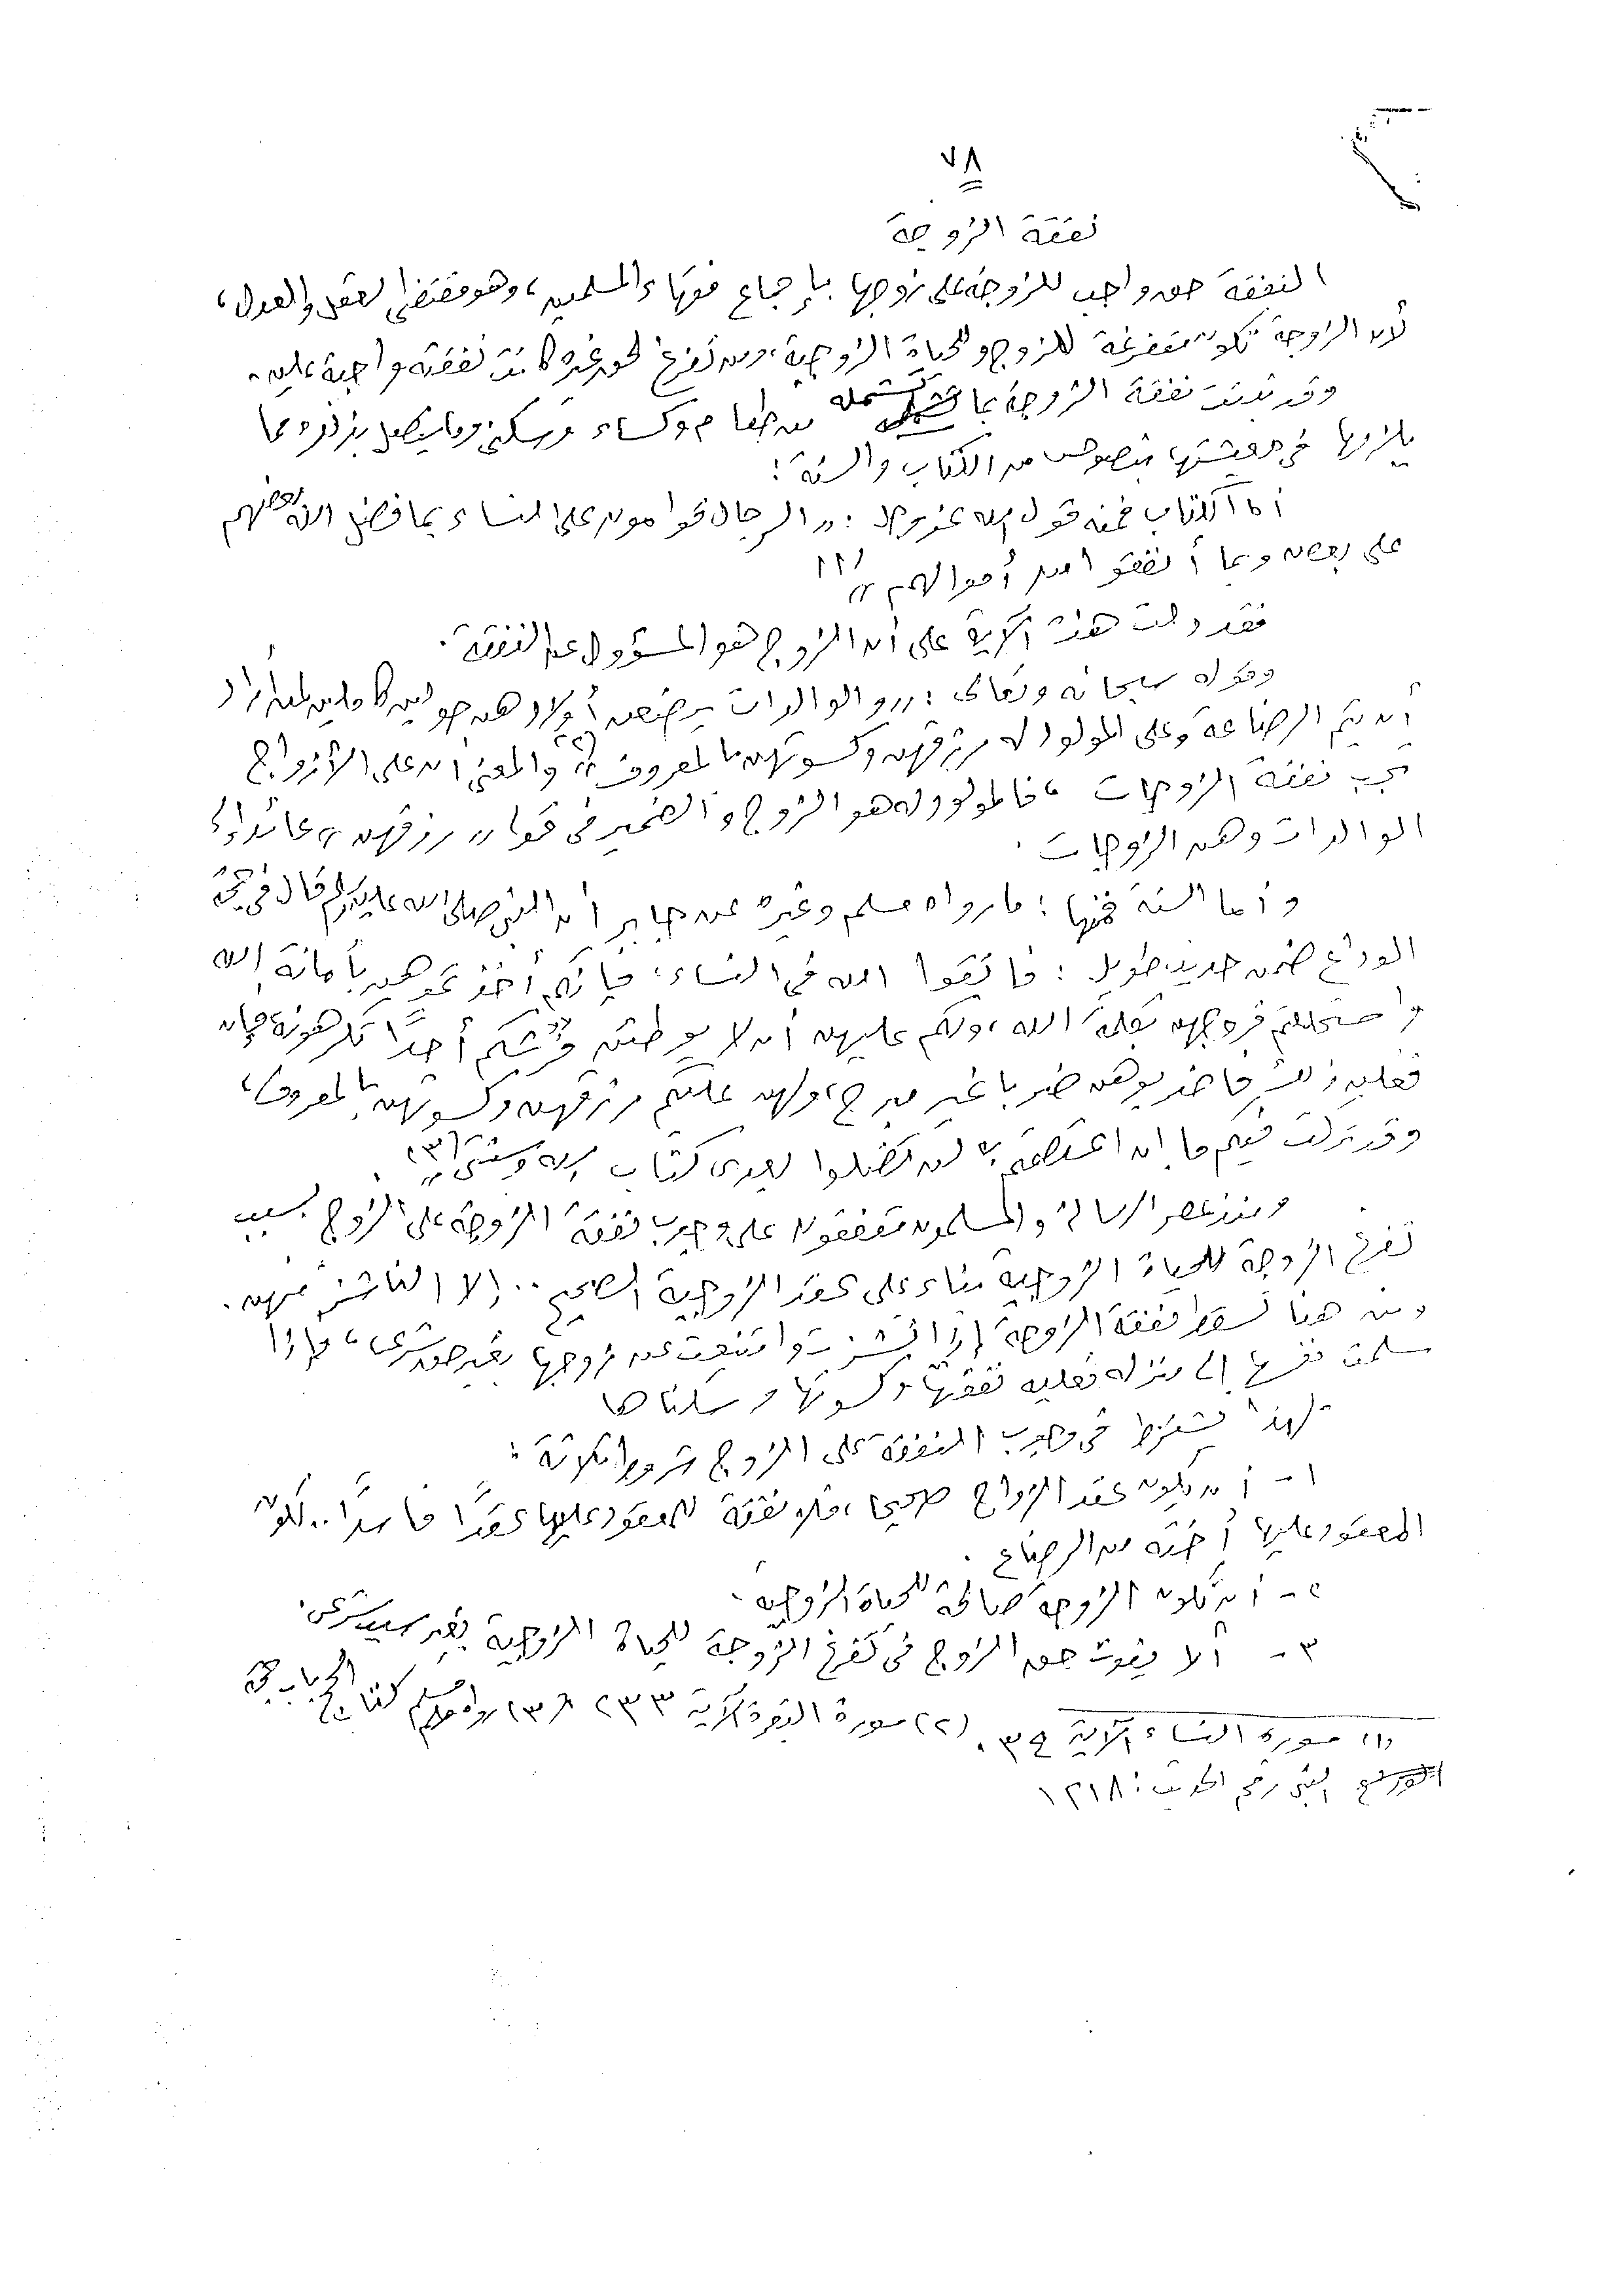 ٧٨
نفقة الزوجة
النفقة حق واجب للزوجة على زوجها بإجماع فقهاء المسلمين، وهو مقتضى العقل والعدل،
لأن الزوجة تكون متفرغة للزوج وللحياة الزوجية، ومن تفرغ لحق غيره كانت نفقته واجبة عليه.
وقد ثبتت نفقة الزوجة بما تشمله من طعام وكساء وسكنى وما يتصل بذلك مما
يلزمها في معيشتها بنصوص من الكتاب والسنة:
أما الكتاب فمنه قول الله عز وجل: "الرجال قوامون على النساء بما فضل الله بعضهم
على بعض وبما أنفقوا من أموالهم" (١)
فقد دلت هذه الآية على أن الزوج هو المسؤول عن النفقة.
وقوله سبحانه وتعالى: "والوالدات يرضعن أولادهن حولين كاملين لمن أراد
أن يتم الرضاعة وعلى المولود له رزقهن وكسوتهن بالمعروف" (٢) والمعنى أن على الأزواج
يجب نفقة الزوجات، فالمولود له هو الزوج والضمير في قوله "رزقهن" عائد إلى
الوالدات وهن الزوجات.
وأما السنة فمنها: ما رواه مسلم وغيره عن جابر أن النبي صلى الله عليه وسلم قال في حجة
الوداع ضمن حديث طويل: فاتقوا الله في النساء، فإنكم أخذتموهن بأمانة الله
واستحللتم فروجهن بكلمة الله، ولكم عليهن أن لا يوطئن فرشكم أحدًا تكرهونه، فإن
فعلن ذلك فاضربوهن ضربا غير مبرح، ولهن عليكم رزقهن وكسوتهن بالمعروف،
وقد تركت فيكم ما إن اعتصمتم به لن تضلوا بعدى كتاب الله وسنتى" (٣).
ومنذ عصر الرسالة والمسلمون متفقون على وجوب نفقة الزوجة على الزوج بسبب
تفرغ الزوجة للحياة الزوجية بناء على عقد الزوجية الصحيح.. إلا الناشز منهن.
ومن هنا تسقط نفقة الزوجة إذا نشزت وامتنعت عن زوجها بغير حق شرعى، فإذا
سلمت نفسها إلى منزله فعليه نفقتها وكسوتها وسكناها
لهذا يشترط في وجوب النفقة على الزوج شروط ثلاثة:
١- أن يكون عقد الزواج صحيحا، فلا نفقة للمعقود عليها عقدًا فاسدًا.. لكون
المعقود عليها أخته من الرضاع.
٢- أن تكون الزوجة صالحة للحياة الزوجية.
٣- ألا يفوت حق الزوج في تفرغ الزوجة للحياة الزوجية بغير سبب شرعى.
(١) سورة النساء الآية ٣٤. (٢) سورة البقرة الآية ٢٣٣ (٣) رواه مسلم كتاب الحج باب حجة
النبي رقم الحديث: ١٢١٨